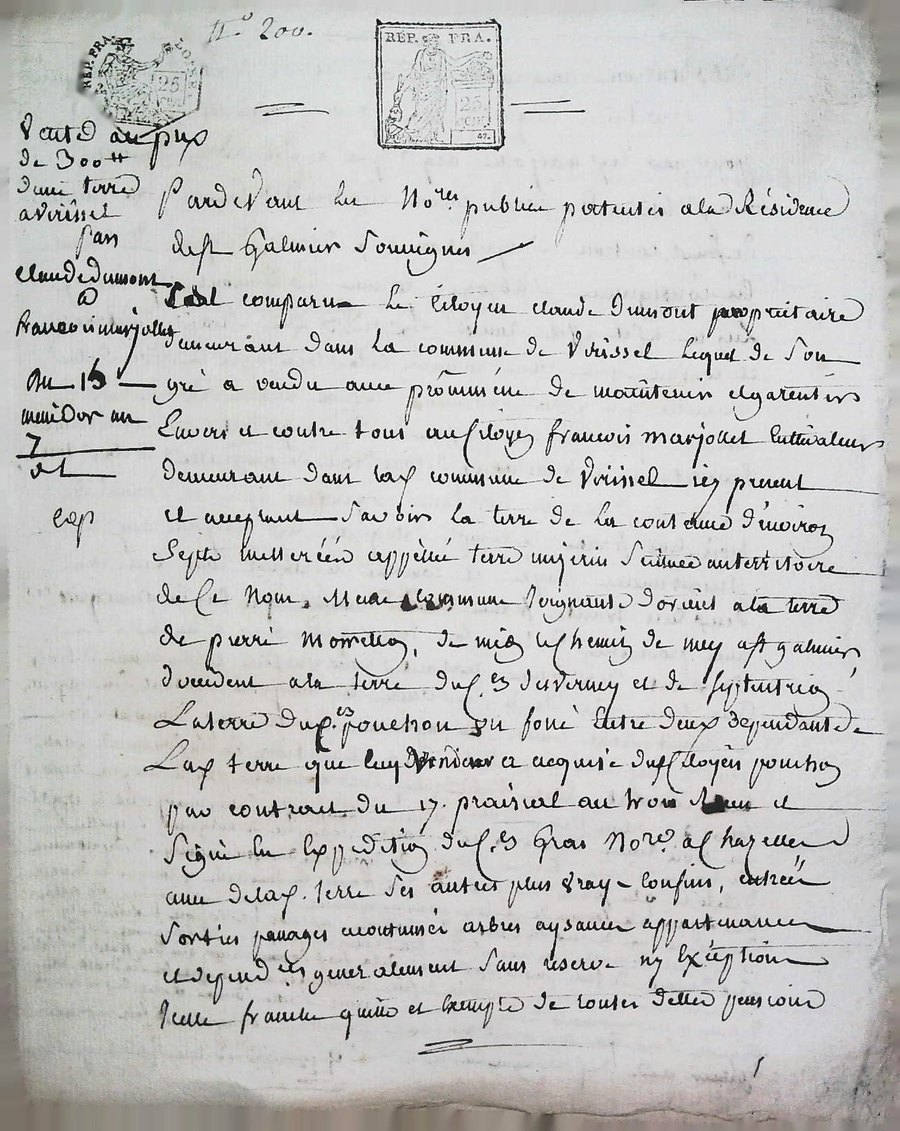 N.º 200.
REP. FRA.
25
REP. FRA.
25
cent.
Vente au prix
de 300 ₶
d'une terre
a virissel
par
claude dumont
a
francois marjollet
Du 15
messidor an
7
exp
Pardevant les No.res publics patentés a la Résidence
de st Galmier Soussignes
Est comparu Le Citoyen claude Dumont propriétaire
demeurant dans la commune de Virissel lequel de Son
gré a vendu avec promesse de maintenir et garentir
Envers et contre tous au Citoyen francois marjollet Cultivateur
demeurant dans lad. commune de Virissel icy present
et acceptant Savoir la terre de la contenue d'environ
Septe metterées appéllé terre Scituée au territoire
de Ce Nom, Meme Commune Joignante d'orient a la terre
de pierre de midy le Chemin de mey a st galmier
d'occident a la terre du C.en desverney et de Septentrion
La terre du C.en pouchon un fossé Entre deux dependant de
Lad. terre que led. Vendeur a acquise du Citoyen pouchon
par contrat du 17. prairial an trois et
Signé En Expédition du C.en Gras No.re a Chazelle
avec de lad. terre Ses autres plus vray Confins, entrées
Sorties passages accoutumés arbres aysances appartenances
et depend.ces generalement Sans reserve ny Exéption
Icelle franche quitte et Exempte de toutes dettes pensions